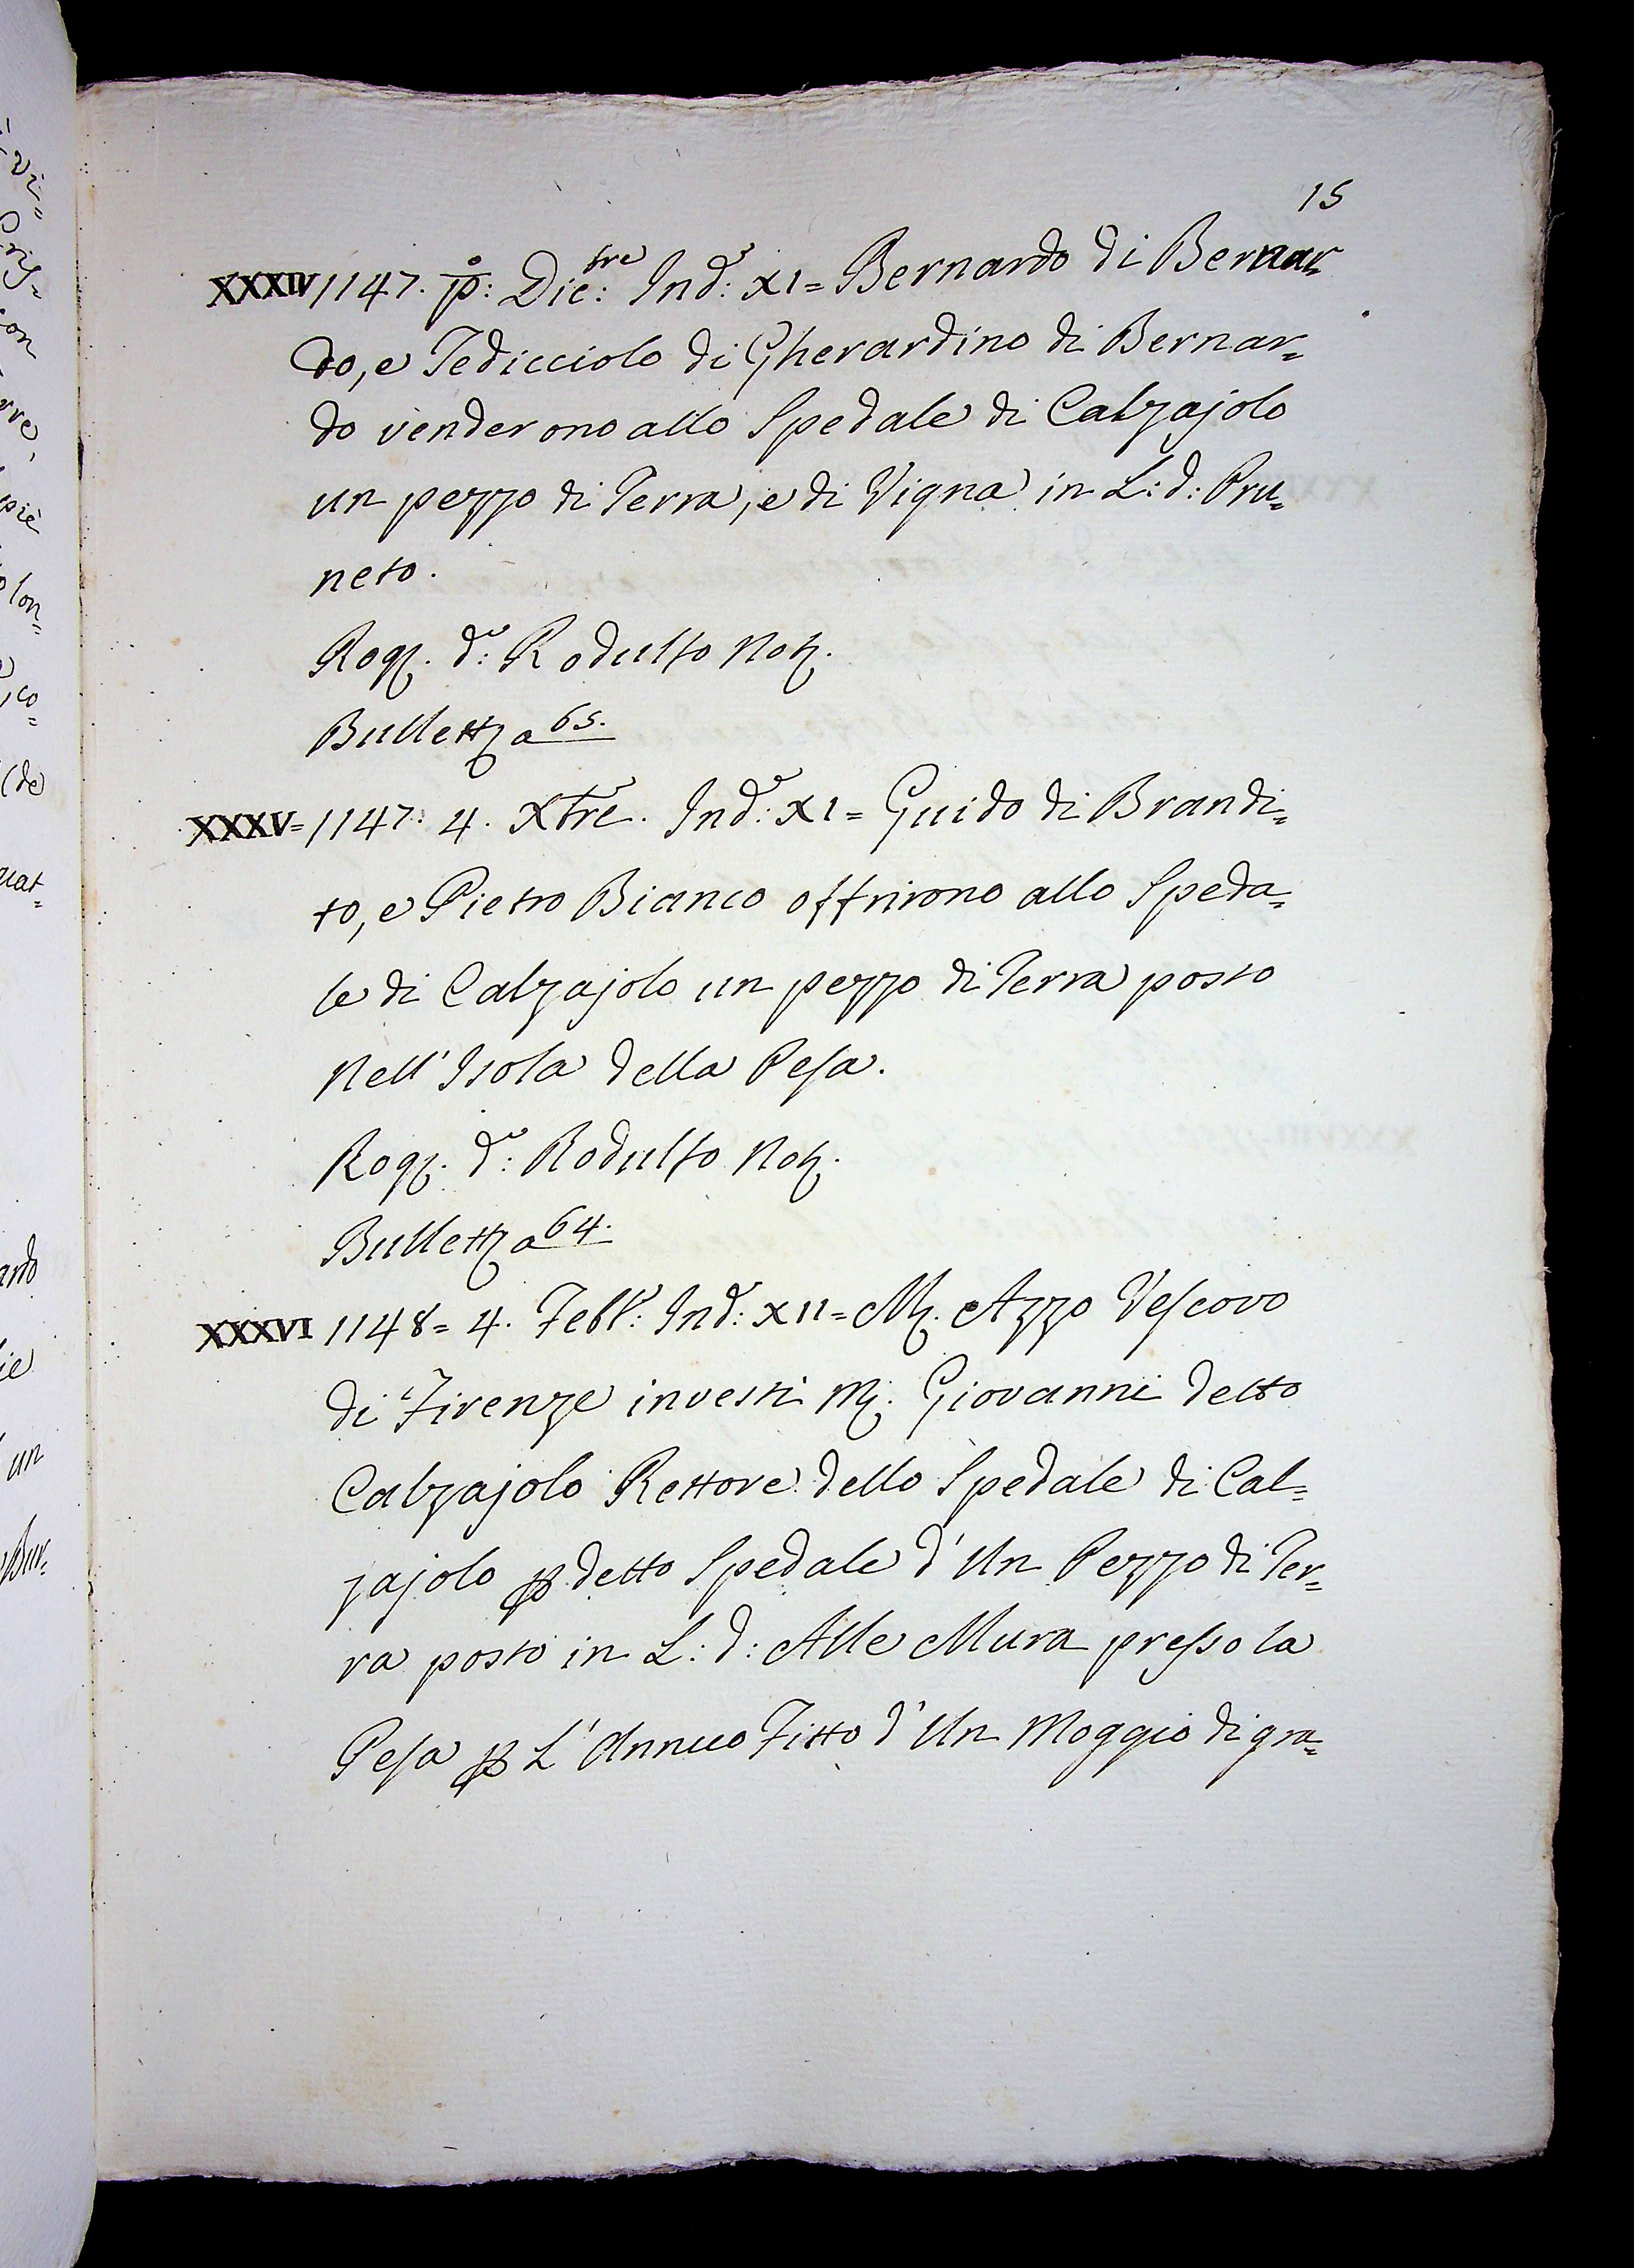 15
XXXIV 1147. p.º: Dic:bre Ind: XI= Bernardo di Bernar=
do, e Tedicciolo di Gherardino di Bernar=
do venderono allo Spedale di Calzajolo
un pezzo di Terra, e di Vigna in L: d: Pru=
neto.
Rog. d: Rodulfo Not.
Bullett a 65.
XXXV= 1147. 4. Xbre. Ind: XI= Guido di Brandi=
to, e Pietro Bianco offrirono allo Speda=
le di Calzajolo un pezzo di Terra posto
nell' Isola della Pesa.
Rog. d: Rodulfo Not.
Bullett a 64.
XXXVI 1148= 4. Febb: Ind: XII= M. Azzo Vescovo
di Firenze investi M. Giovanni detto
Calzajolo Rettore dello Spedale di Cal=
zajolo p detto Spedale d' Un Pezzo di Ter=
ra posto in L: d: Alle Mura presso la
Pesa p L' Annuo Fitto d' Un Moggio di gra=